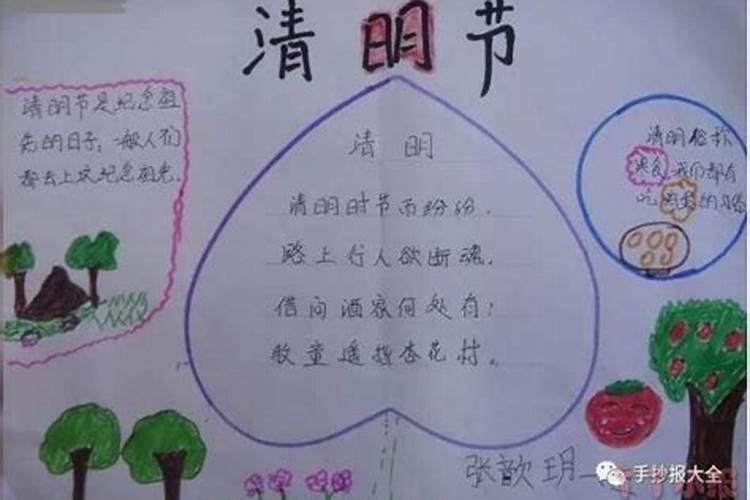 清明节
清明节是纪念祖
先的日子，一般人们
都去上坟纪念祖先.
清明
清明时节雨纷纷.
路上行人欲断魂.
借问酒家何处有:
牧童遥指杏花村。
清明俗称
寒食.我们都有
吃鸡蛋的习俗
张歆玥
手抄报大全